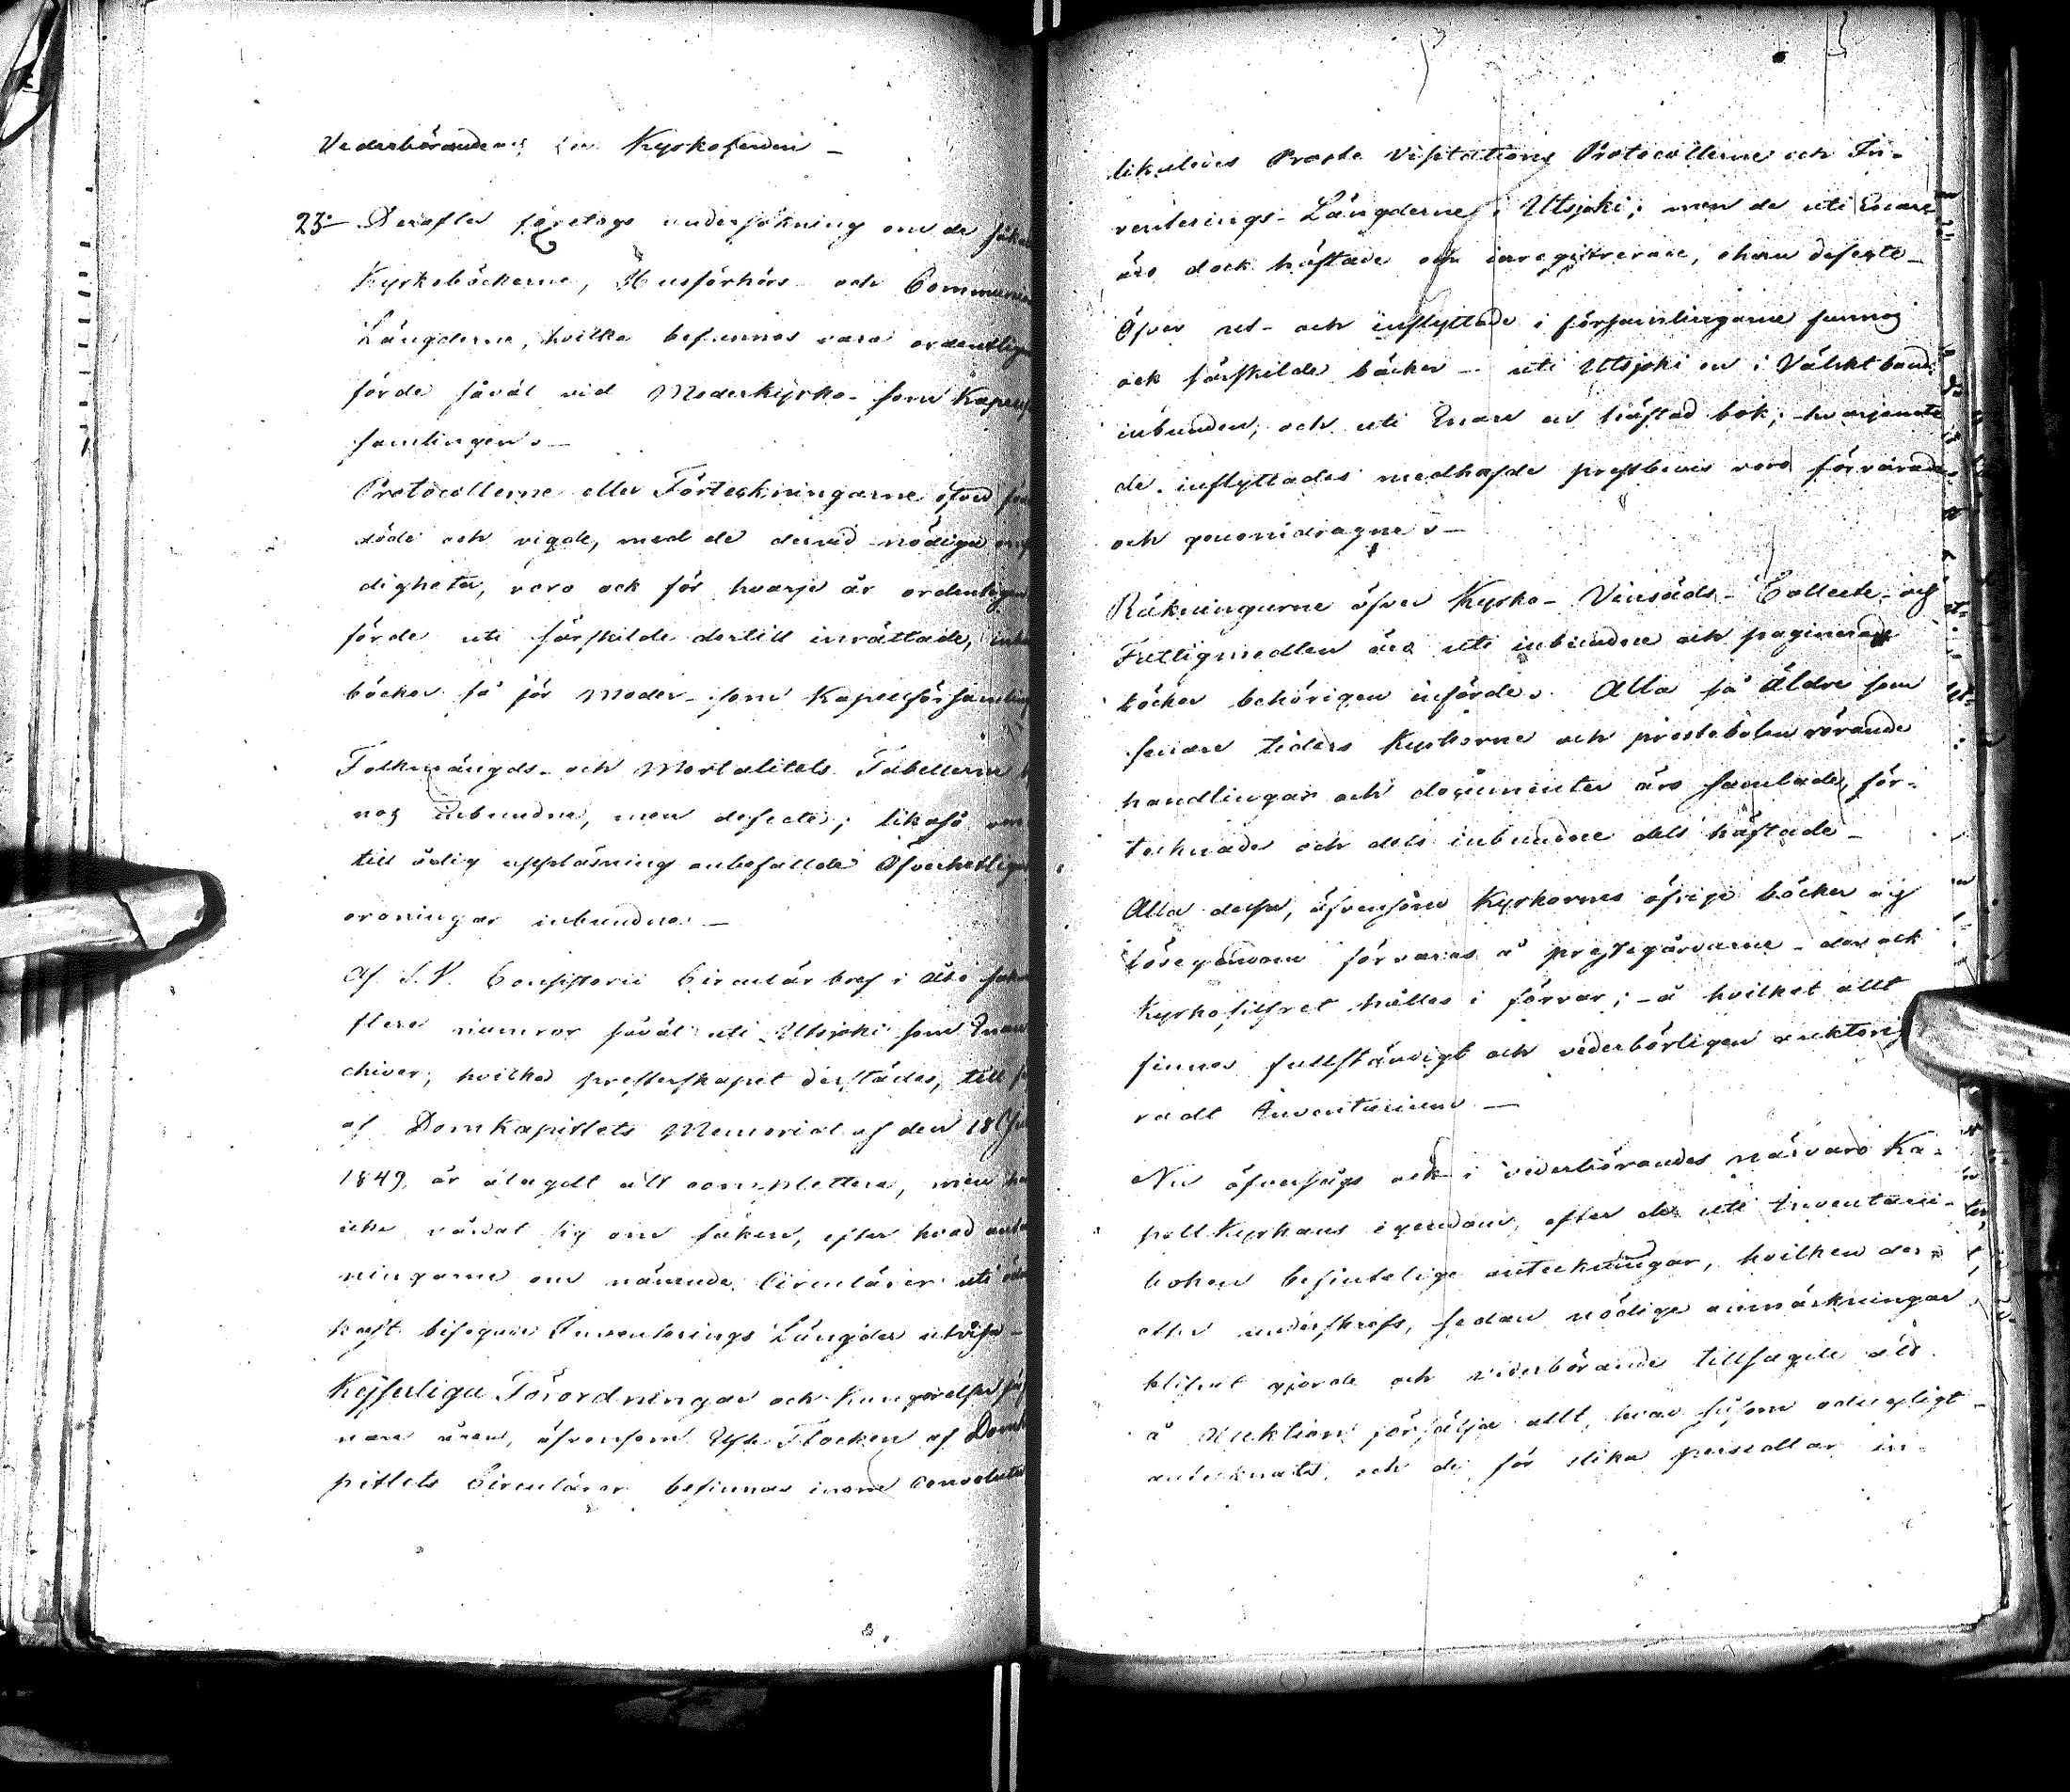 Vederbörandes Kyrkoherden –
23:– Derefter företogs undersökning om de
Kyrkoböckerne, Husförhörs- och Communion
Längderne, hvilka befunnos vara ordentligen
förde såväl vid Moderkyrko- som Kapellför
samlingen. –
Protocollerne eller Förteckningarne öfver
döde och vigde, med de dervid nödiga
digheter, voro ock för hvarje år ordentligen
förde uti särskilde dertill inrättade,
böcker så för Moder- som Kapellförsamling
Folkmängds- och Mortalitets Tabellerne
nog inbundne, men defecte; likaså
till årlig uppläsning anbefallde Öfverhetliga
ordningar inbundne. –
Af S. V. Consistorii Circulär bref i Åbo
flere numror såväl uti Utsjoki som Enare
chiver, hvilka presterskapet derstädes, till
af Domkapitlets Memorial af den 18
1849, är ålagdt att complettera, men
icke vårdat sig om saken, efter hvad
ningarne om nämnde Circulärer uti
häft. bifogade Inventerings Längder utvisa –
Kejserliga Förordningar och Kungörelser
nare åren, äfvensom Ulfe Flocken af Domka
pitlets Circulärer befinnas inom convoluter
likaledes Proste Visitations Protocollerne och In-
venterings-Längderne i Utsjoki; men de uti Enare
äro dock häftade och inregistrerade, ehuru defecte –
Öfver ut- och inflyttade i församlingarne funnos
ock särskilde böcker – uti Utsjoki en i Välskt band
inbunden, och uti Enare en häftad bok; hvarjemte
de inflyttades medhafde prestbevis voro förvarade
och genomdragne. –
Räkningarne öfver Kyrko- Vinsäds- Collecte- och
Fattigmedlen äro uti inbundne och paginerade
böcker behörigen införde. Alla så äldre som
senare tiders Kyrkorne och prestebolen rörande
handlingar och documenter äro samlade, för-
tecknade och dels inbundne dels häftade –
Alla dessa, äfvensom Kyrkornes öfrige böcker och
lösegendom förvaras å prestegårdarne – der ock
Kyrkosilfret hålles i förvar; – å hvilket allt
finnes fullständigt och vederbörligen auktori-
radt Inventarium –
Nu öfversågs ock i vederbörandes närvaro Ka-
pellkyrkans egendom, efter de uti Inventarii-
boken befintelige anteckningar, hvilken der-
efter underskrefs, sedan nödige anmärkningar
blifvit gjorde och vederbörande tillsagde att
å Auktion försälja allt, hvad såsom odugligt
antecknats, och de för slika persedlar in-